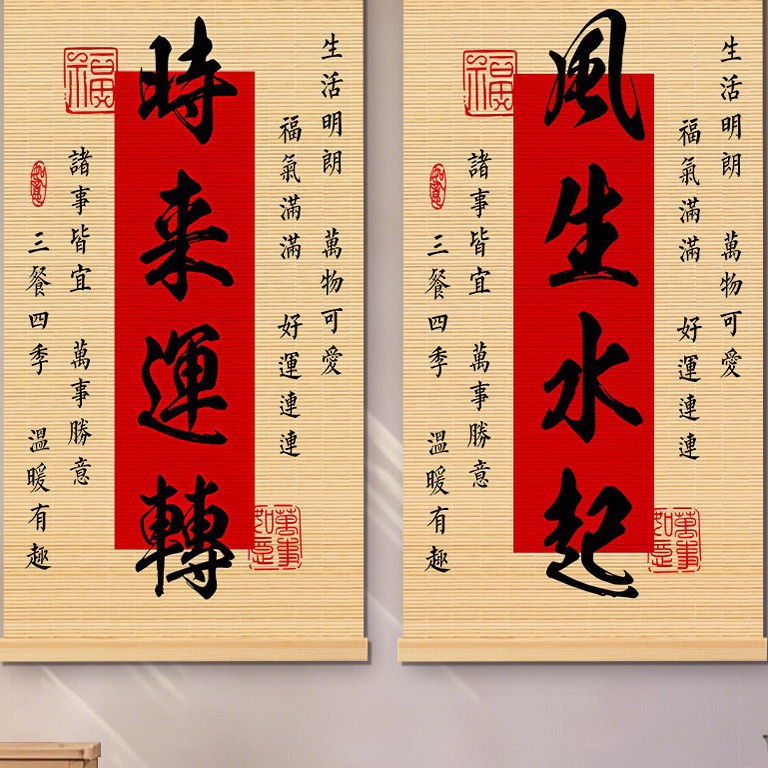 生活明朗 萬物可愛
福氣滿滿 好運連連
萬事如意
風生水起
福
諸事皆宜 萬事勝意
三餐四季 溫暖有趣
如意
生活明朗 萬物可愛
福氣滿滿 好運連連
萬事如意
時来運轉
福
諸事皆宜 萬事勝意
三餐四季 溫暖有趣
如意